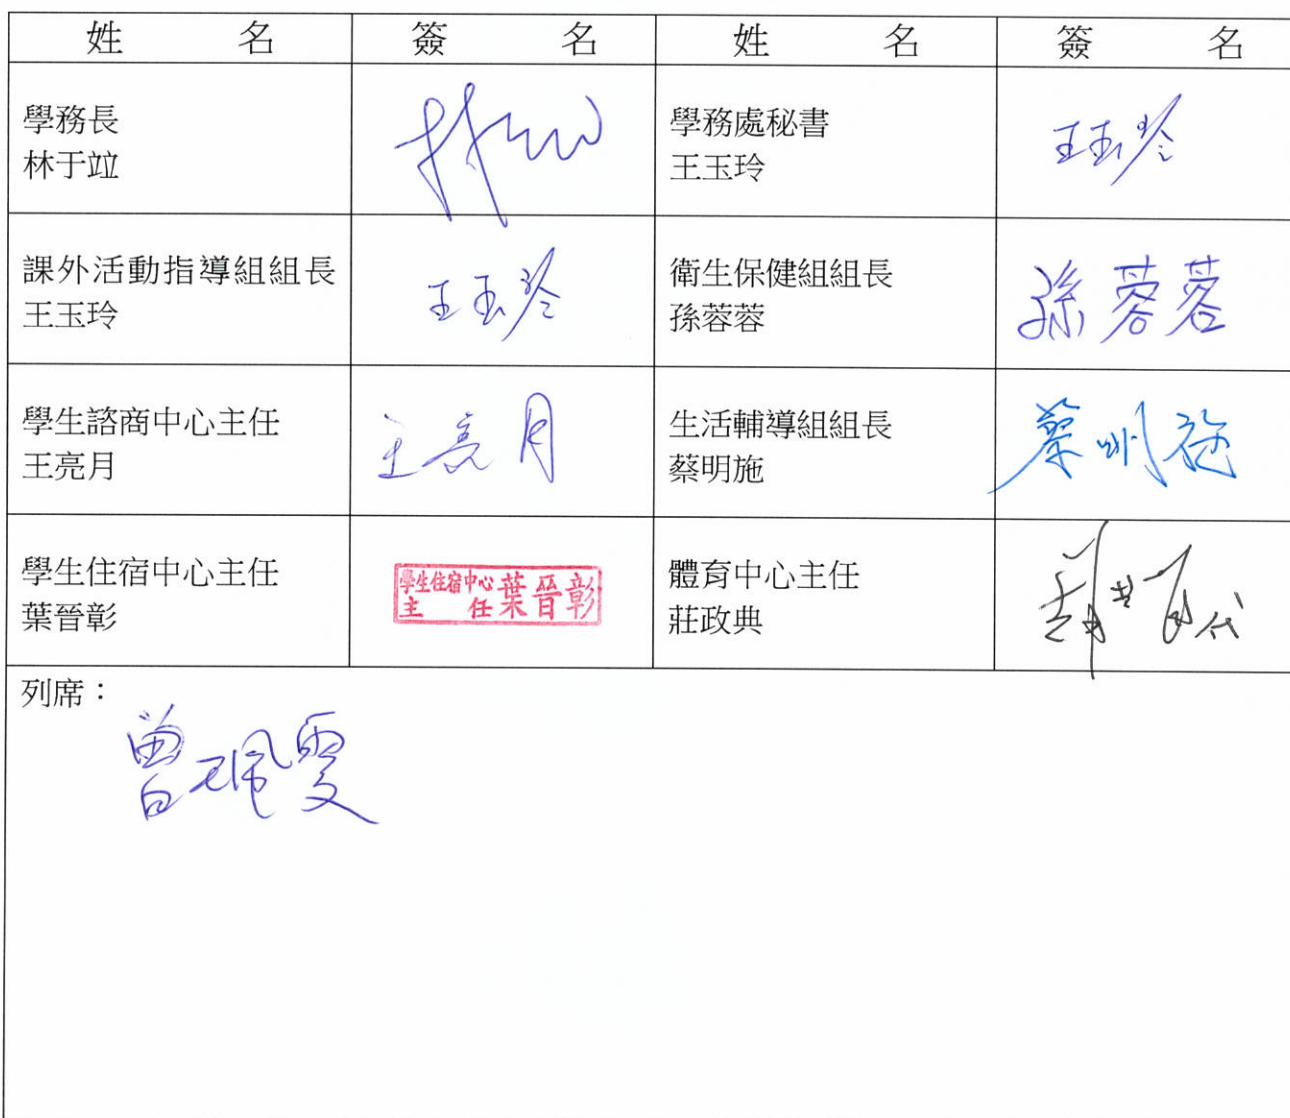 姓名 簽名 姓名 簽名
學務長
林于竝
學務處秘書
王玉玲
王玉玲
課外活動指導組組長
王玉玲
王玉玲
衛生保健組組長
孫蓉蓉
孫蓉蓉
學生諮商中心主任
王亮月
王亮月
生活輔導組組長
蔡明施
蔡明施
學生住宿中心主任
葉晉彰
學生住宿中心
主任 葉晉彰
體育中心主任
莊政典
代
列席：
曾珮雯